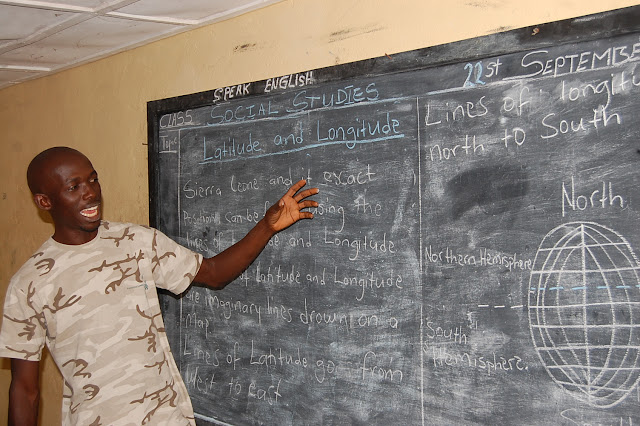 SPEAK ENGLISH
CLASS SOCIAL STUDIES 22st SEPTEMBE
Topic
Latitude and Longitude
Sierra Leone and it exact
can be using the
lines of and Longitude
of Latitude and Longitude
are imaginary lines drown on a
map
Lines of Latitude go from
West to East
Lines of longitu
north to South
North
Northern Hemisphere
South
Hemisphere.